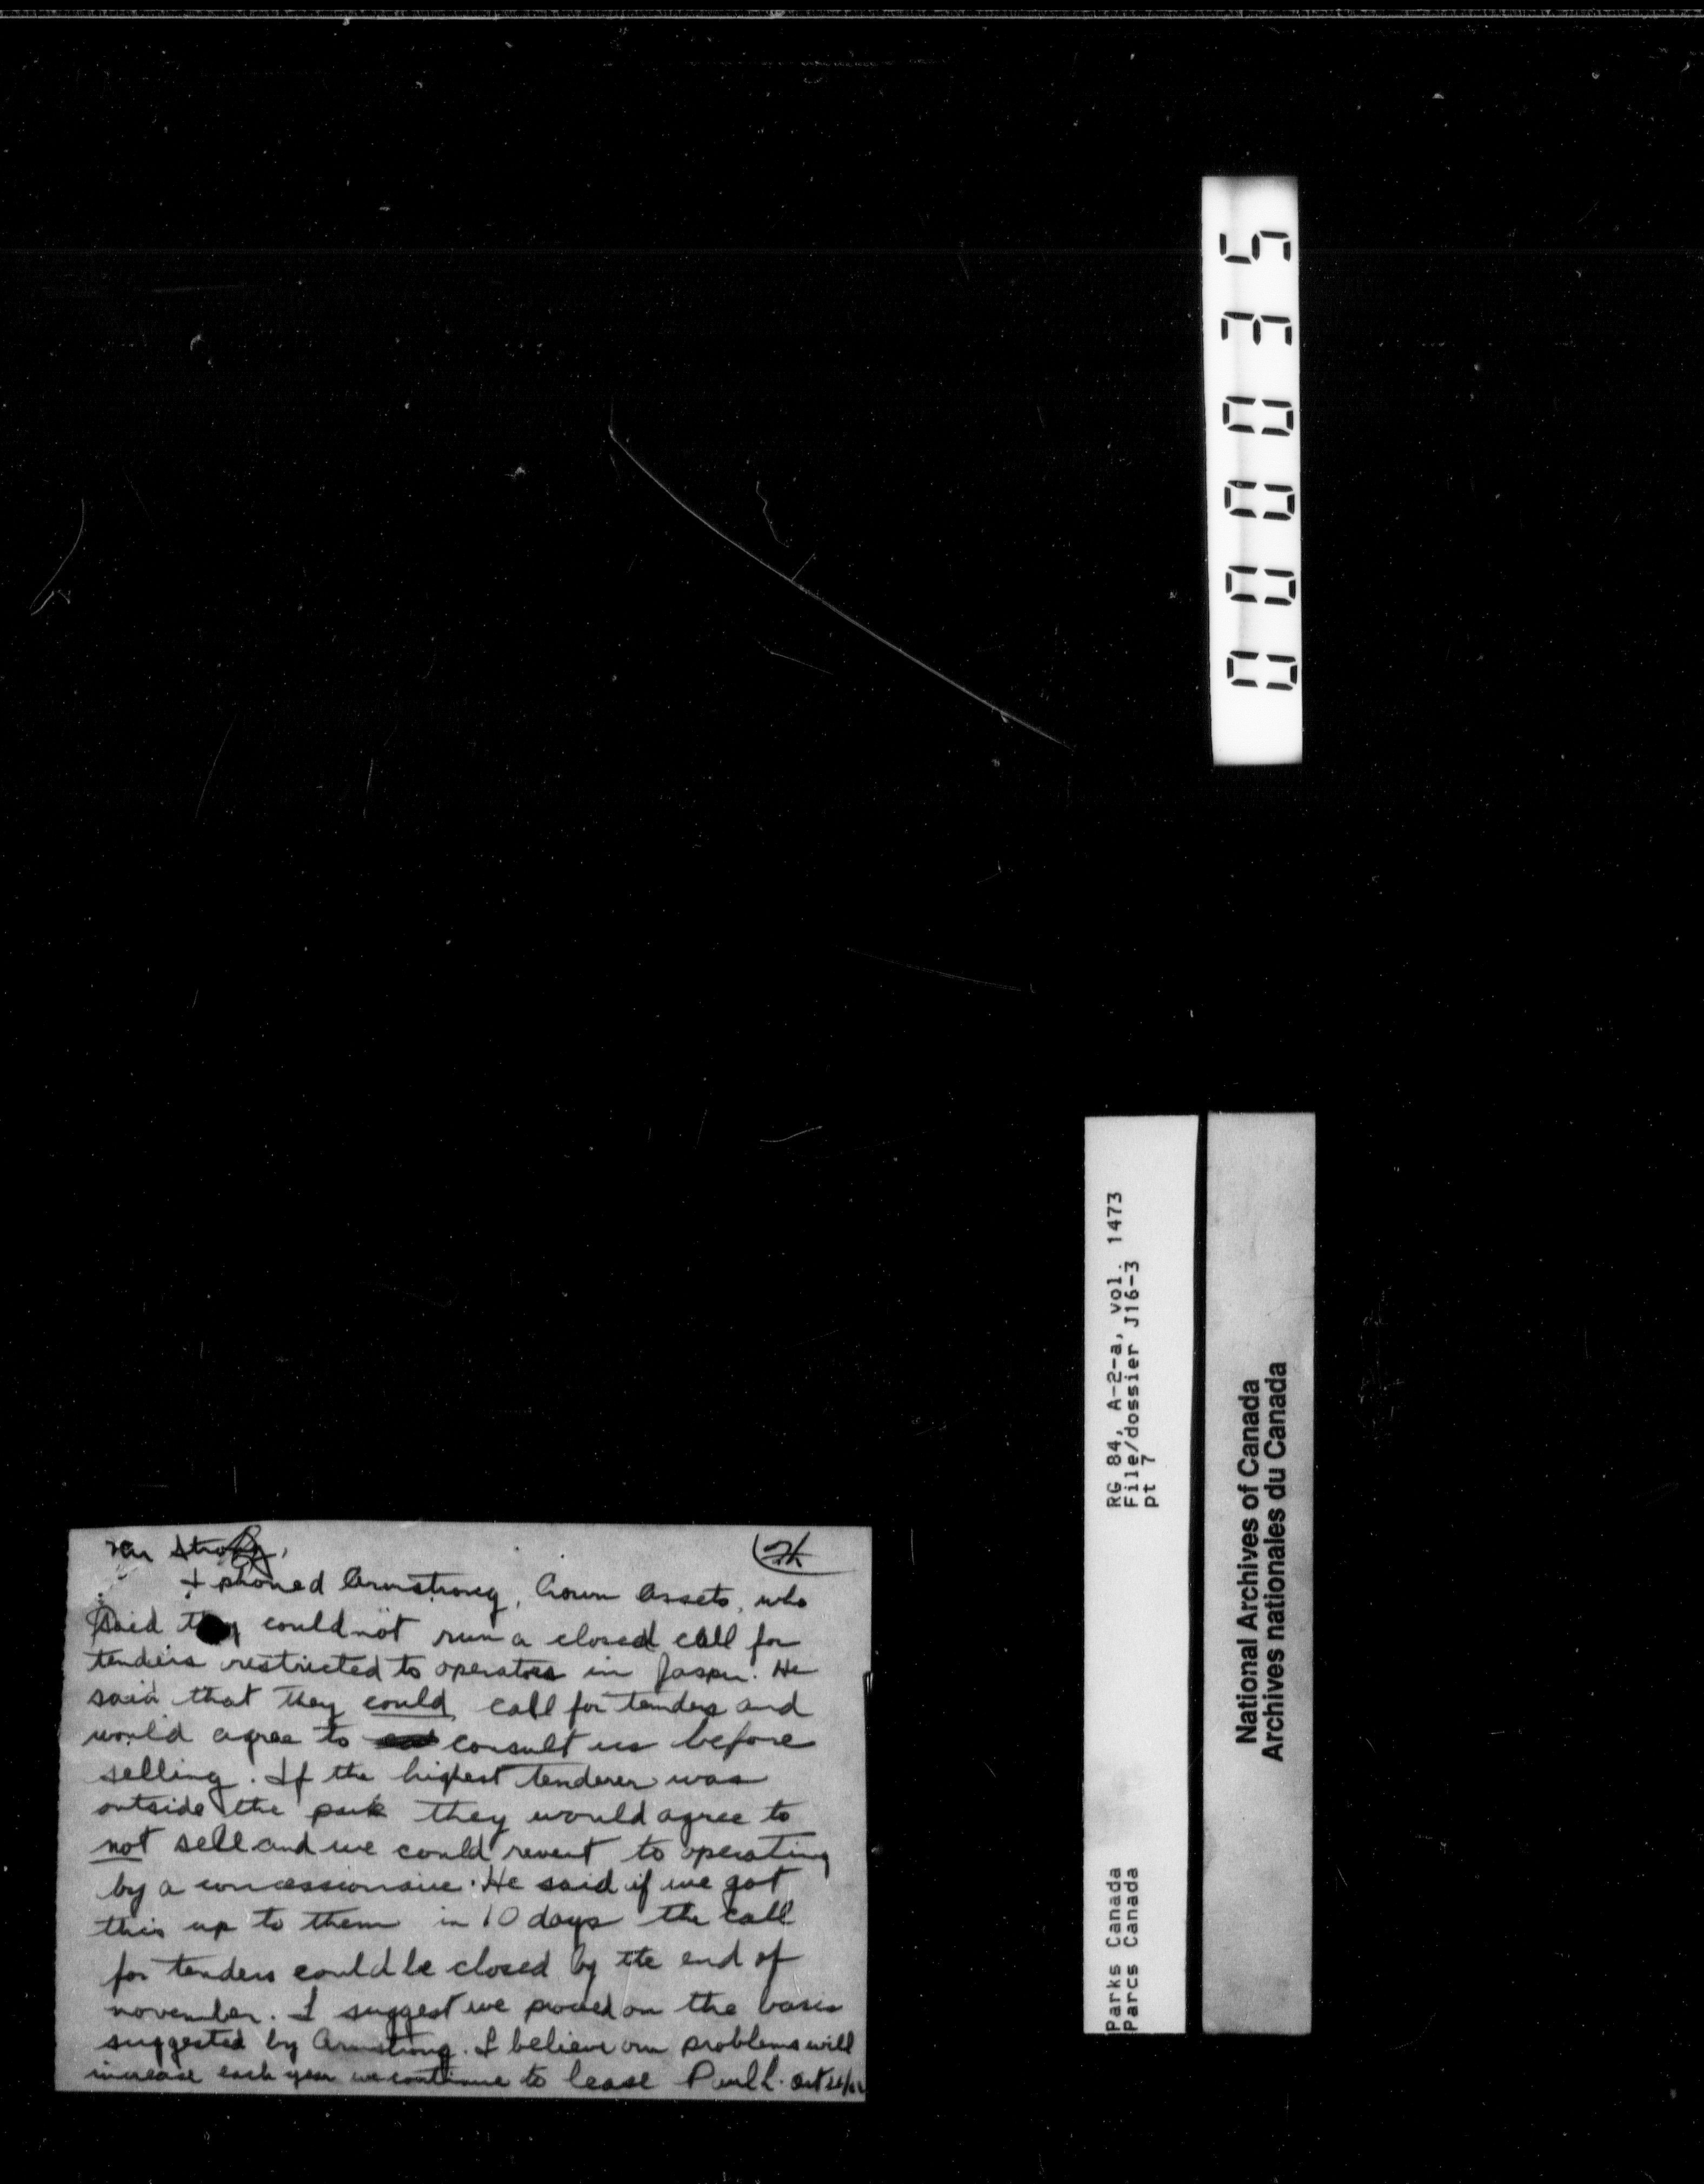 Mr Strong,
I phoned Armstrong, Crown Assets, who
said they could not run a closed call for
tenders restricted to operators in Jasper. He
said that they could call for tenders and
would agree to consult us before
selling. If the highest tenderer was
outside the park they would agree to
not sell and we could revert to operating
by a concessionaire. He said if we got
this up to them in 10 days the call
for tenders could be closed by the end of
november. I suggest we proceed on the basis
suggested by Armstrong. I believe our problems will
increase each year we continue to lease
000035
RG 84, A-2-a, vol. 1473
File/dossier J16-3
pt 7
Parks Canada
Parcs Canada
National Archives of Canada
Archives nationales du Canada